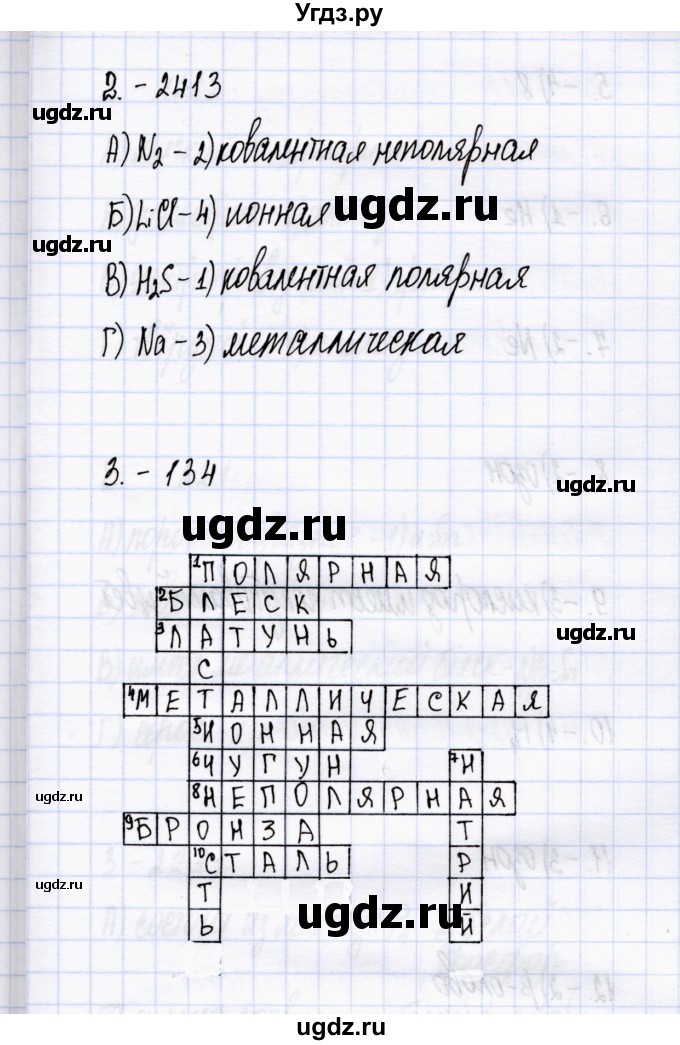 Угдз.ру
2. - 2413
ugdz.ru
А) N₂ - 2) ковалентная неполярная
Б) LiCl - 4) ионная
ugdz.ru
ugdz.ru
В) H₂S - 1) ковалентная полярная
Г) Na - 3) металлическая
3. - 134
ugdz.ru
ugdz.ru
1 ПОЛЯРНАЯ
2 БЛЕСК
3 ЛАТУНЬ
ugdz.ru
С
4 МЕТАЛЛИЧЕСКАЯ
5 ИОННАЯ
6 ЧУГУН 7 Н
8 НЕПОЛЯРНАЯ
ugdz.ru
9 БРОНЗА Т
10 СТАЛЬ Р
Т И
ugdz.ru
Ь Й
ugdz.ru